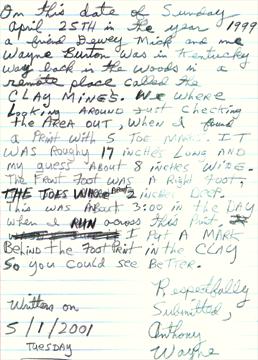 On this date of Sunday
April 25TH in the year 1999
a friend Dewey Mick and me
Wayne Burton was in Kentucky
way back in the woods in a
remote place called the
CLAY MINES. We where
Looking around just checking
the AREA OUT, When I found
a Print With 5 TOE MARKS. IT
WAS Roughly 17 inches LONG AND
my guess About 8 inches WiDE.
The Front Foot was A Right Foot,
THE TOES WHERE 2 inches DEEP.
This was About 3:00 in the DAY
when I RUN across this Print.
I Put A MARK
BEHIND the Foot Print in the CLAY
So you Could see BETTER.
Respectfully
Submitted,
Written on
Anthony
5/1/2001
Wayne
TUESDAY